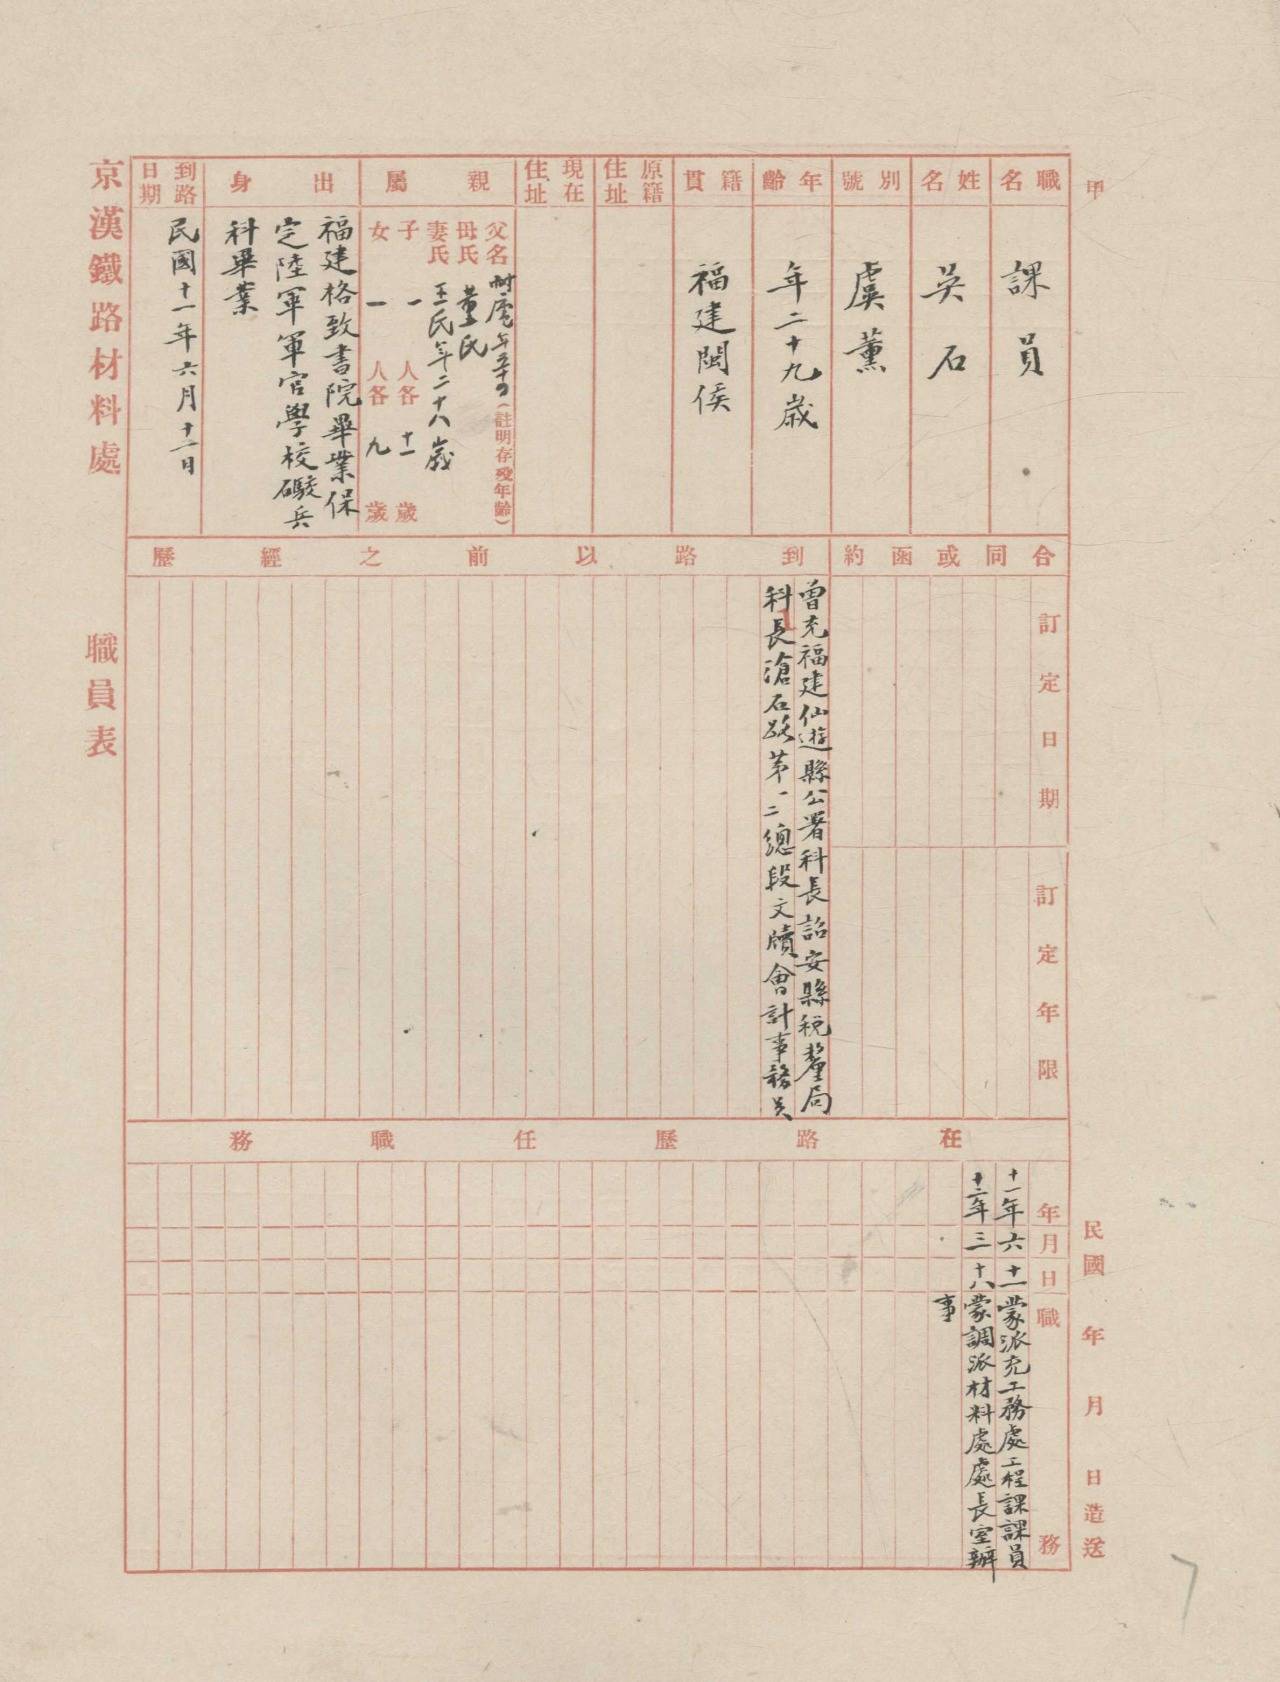 甲
職名
課員
姓名
吳石
別號
虞薰
年齡
年二十九歲
籍貫
福建閩侯
原籍住址
現在住址
親屬
父名 樹虎年五十四（註明存歿年齡）
母氏 董氏
妻氏 王氏年二十八歲
子 一 人各 十一 歲
女 一 人各 九 歲
出身
福建格致書院畢業保
定陸軍軍官學校礮兵
科畢業
到路日期
民國十一年六月十一日
京漢鐵路材料處 職員表
合同或函約
訂定日期
訂定年限
到路以前之經歷
曾充福建仙遊縣公署科長詔安縣稅釐局
科長滄石路第一二總段文牘會計事務員
在路歷任職務
年月日職務
十一年六十一蒙派充工務處工程課課員
十二年三十八蒙調派材料處處長室辦
事
民國 年 月 日造送
7